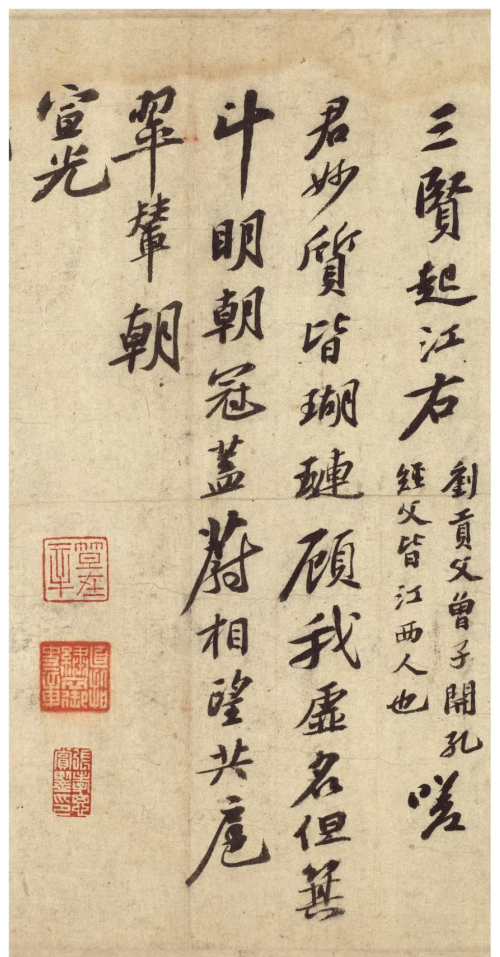 三賢起江右劉貢父曾子開孔
經父皆江西人也嗟
君妙質皆瑚璉顧我虛名但箕
斗明朝冠蓋蔚相望共扈
翠輦朝
宣光